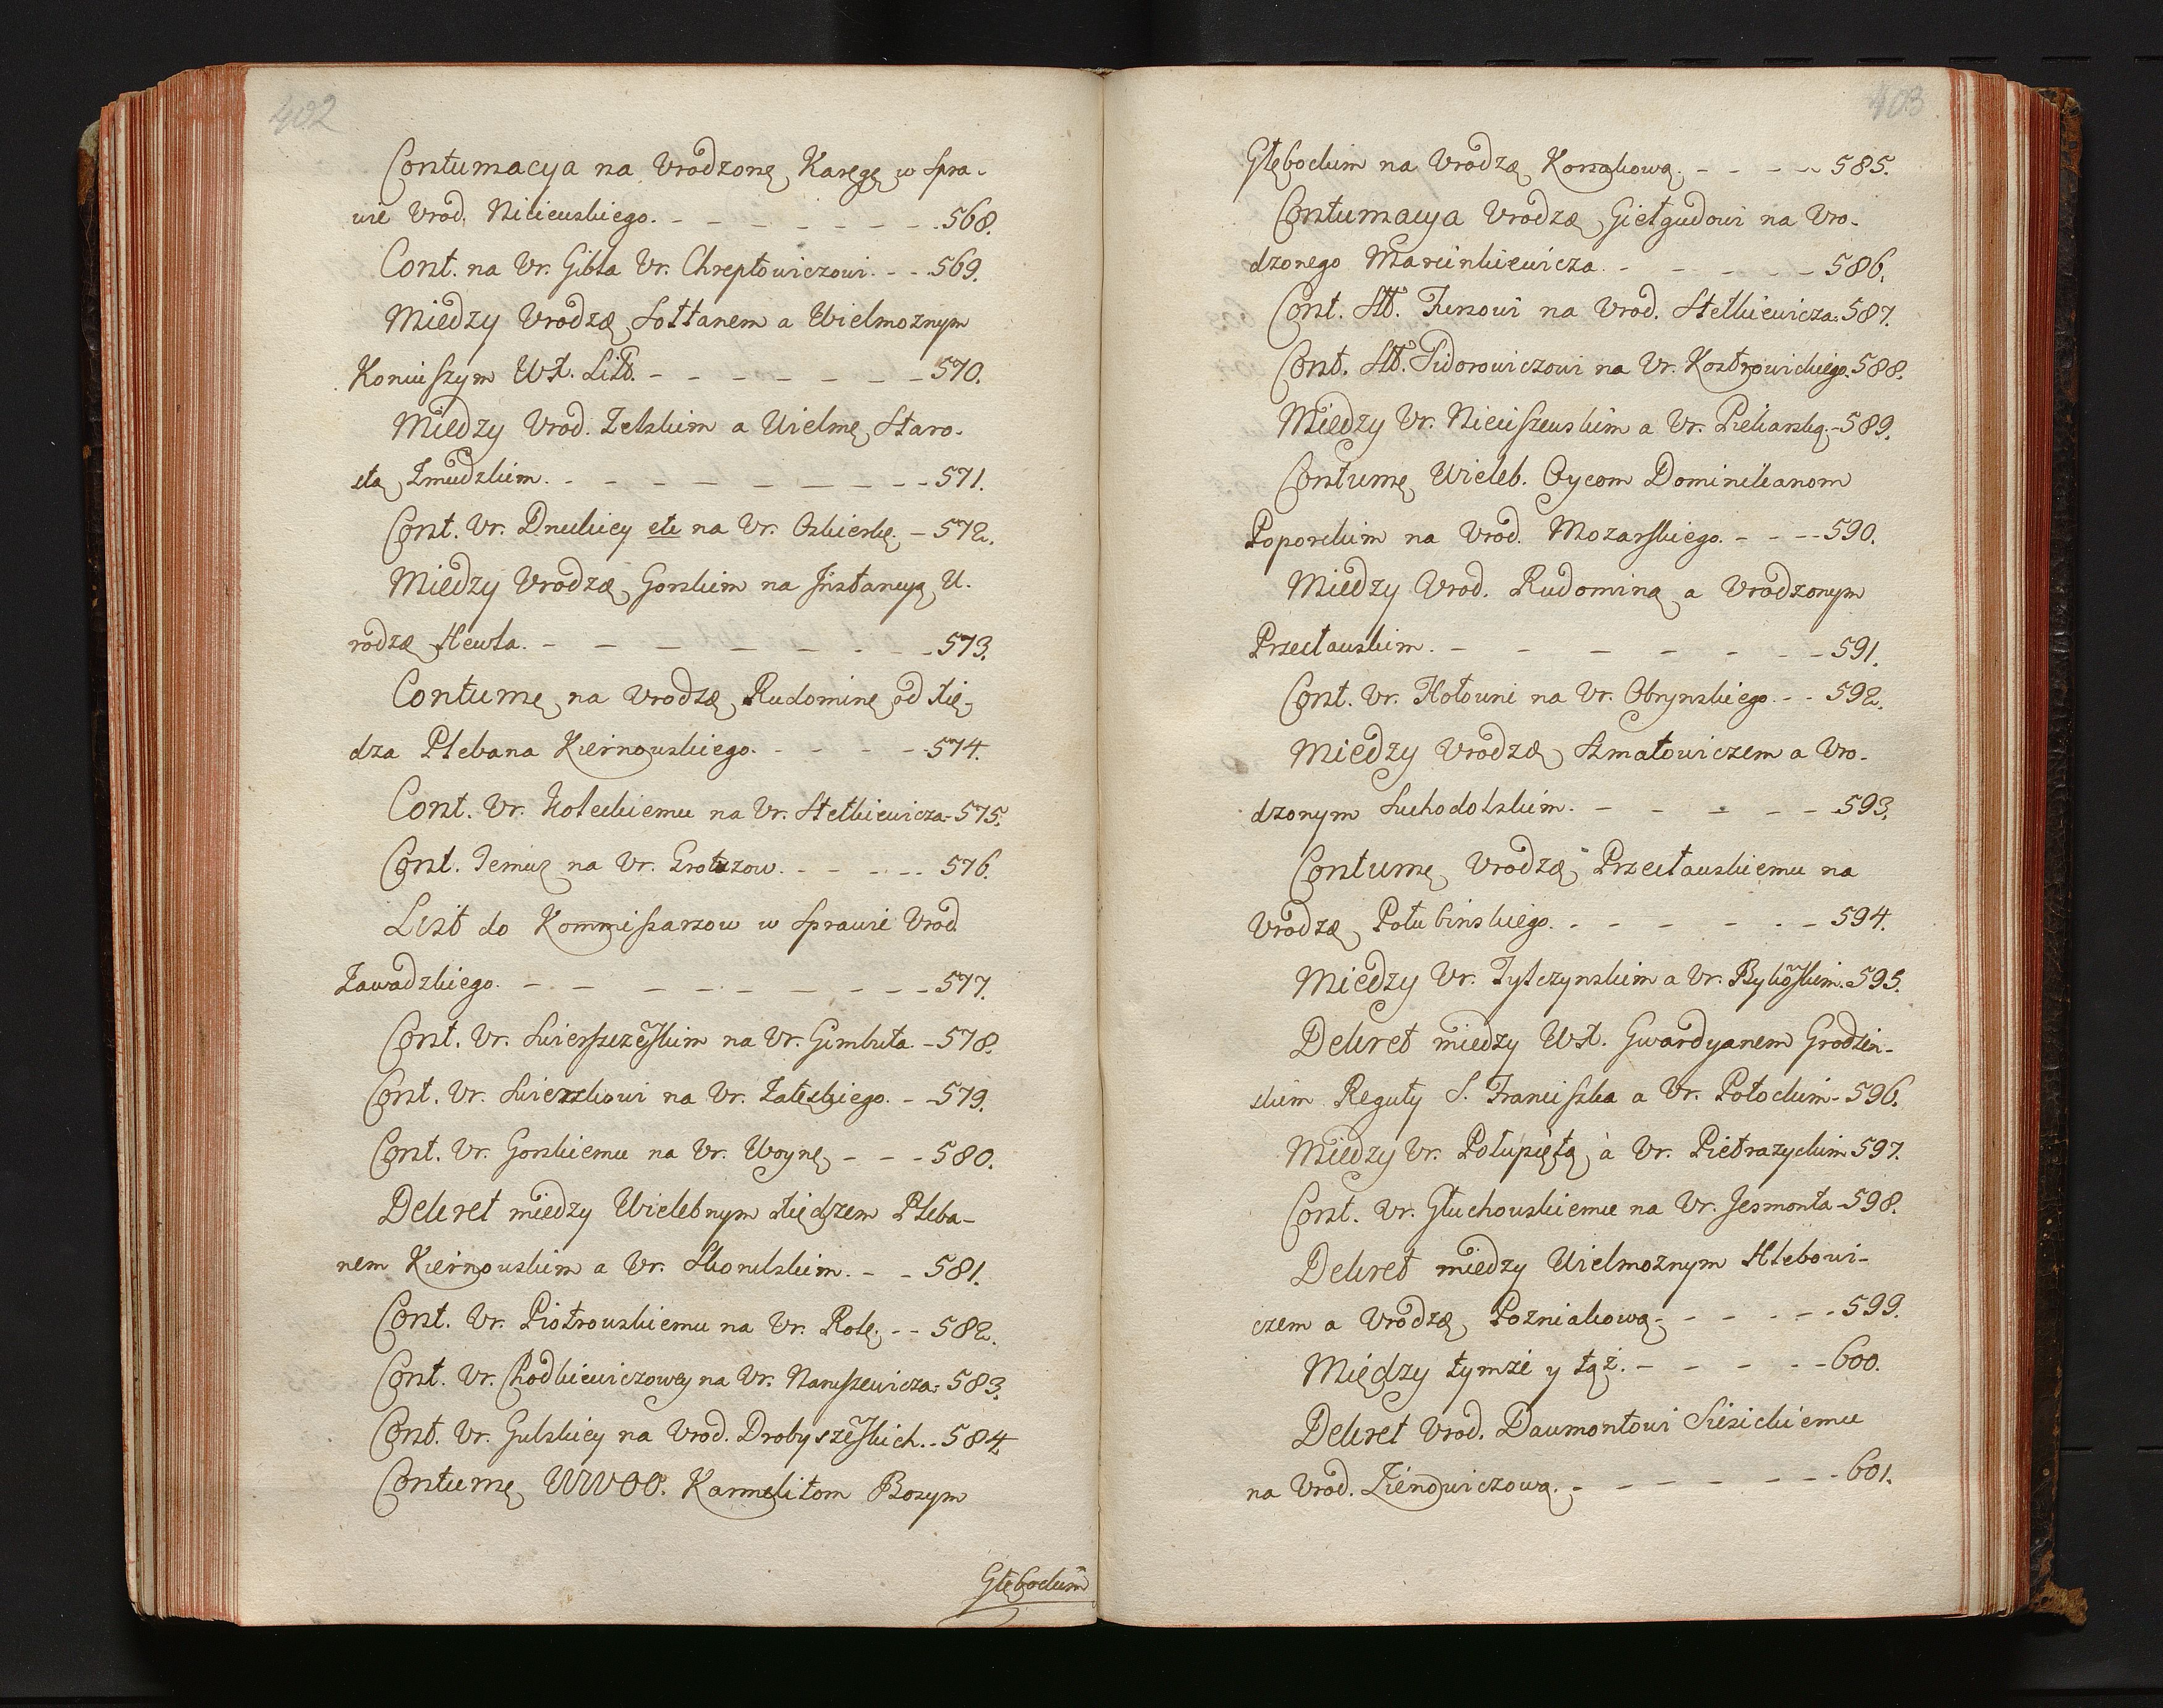 402
Contumacya na Vrodzonę Karęgę w spra-
wie Vrod. Niciewskiego. - - - - - - - 568.
Cont. na Vr. Gibla Vr. Chreptowiczowi. - - 569.
Miedzy Vrodzę Sołtanem a Wielmoznym
Koniuszym WX. Litt. - - - - - - - 570.
Miedzy Vrod. Zelskim a Wielmę Staro-
stą Zmudzkim. - - - - - - - - - 571.
Cont. Vr. Druckiey etc na Vr. Oskierkę. - 572.
Miedzy Vrodzę Gorskim na Jnstancyą U-
rodzę Hewla. - - - - - - - - 573.
Contumę na Vrodzę Rudominę od Xię-
dza Plebana Kiernowskiego. - - - - 574.
Cont. Vr. Koleckiemu na Vr. Stetkiewicza - 575.
Cont. Jemuz na Vr. Grotuzow. - - - - - 576.
List do Kommissarzow w Sprawie Vrod
Zawadzkiego. - - - - - - - - - 577.
Cont. Vr. Swierszczẽskim na Vr. Gimbuta. - 578.
Cont. Vr. Swierzkowi na Vr. Zaleskiego. - - 579.
Cont. Vr. Gorskiemu na Vr. Woynę - - - 580.
Dekret miedzy Wielebnym Xiędzem Pleba-
nem Kiernowskim a Vr. Skorulskim. - - 581.
Cont. Vr. Piotrowskiemu na Vr. Rolę. - - 582.
Cont. Vr. Chodkiewiczowey na Vr. Naruszewicza - 583.
Cont. Vr. Gulskiey na Vrod. Drobyszẽskich. - 584
Contumę WWOO. Karmelitom Bosym
Głębockim
403
Głębockim na Vrodzę Korsakową. - - - - - 585.
Contumacya Vrodzę Giełgudowi na Vro-
dzonego Marcinkiewicza. - - - - - - 586.
Cont. Stt. Furs​owi na Vrod. Stetkiewicza. 587.
Cont. Stt. Sidorowiczowi na Vr. Kostrowickiego. 588.
Miedzy Vr. Nieciszewskim a Vr. Piekarską. - 589.
Contumę Wieleb. Oycom Dominikanom
Poporckim na Vrod. Mozarskiego. - - - - 590.
Miedzy Vrod. Rudominą a Vrodzonym
Przecławskim. - - - - - - - - 591.
Cont. Vr. Hołowni na Vr. Obrynskiego. - - 592.
Miedzy Vrodzę Szmatowiczem a Vro-
dzonym Suchodolskim. - - - - - - 593.
Contumę Vrodzę Przecławskiemu na
Vrodzę Połubinskiego. - - - - - - - 594.
Miedzy Vr. Tylczynskim a Vr. Bykõskim. - 595.
Dekret miedzy WX. Gwardyanem Grodzin-
skim Reguły S. Franciszka a Vr. Potockim - 596.
Miedzy Vr. Połupiętą a Vr. Pietrazyckim 597.
Cont. Vr. Głuchowskiemu na Vr. Jesmonta - 598.
Dekret miedzy Wielmoznym Hlebowi-
czem a Vrodzę Pozniakową. - - - - - 599.
Między tymże y tąż. - - - - - - 600.
Dekret Vrod. Daumontowi Siesickiemu
na Vrod. Zienowiczową. - - - - - - - 601.